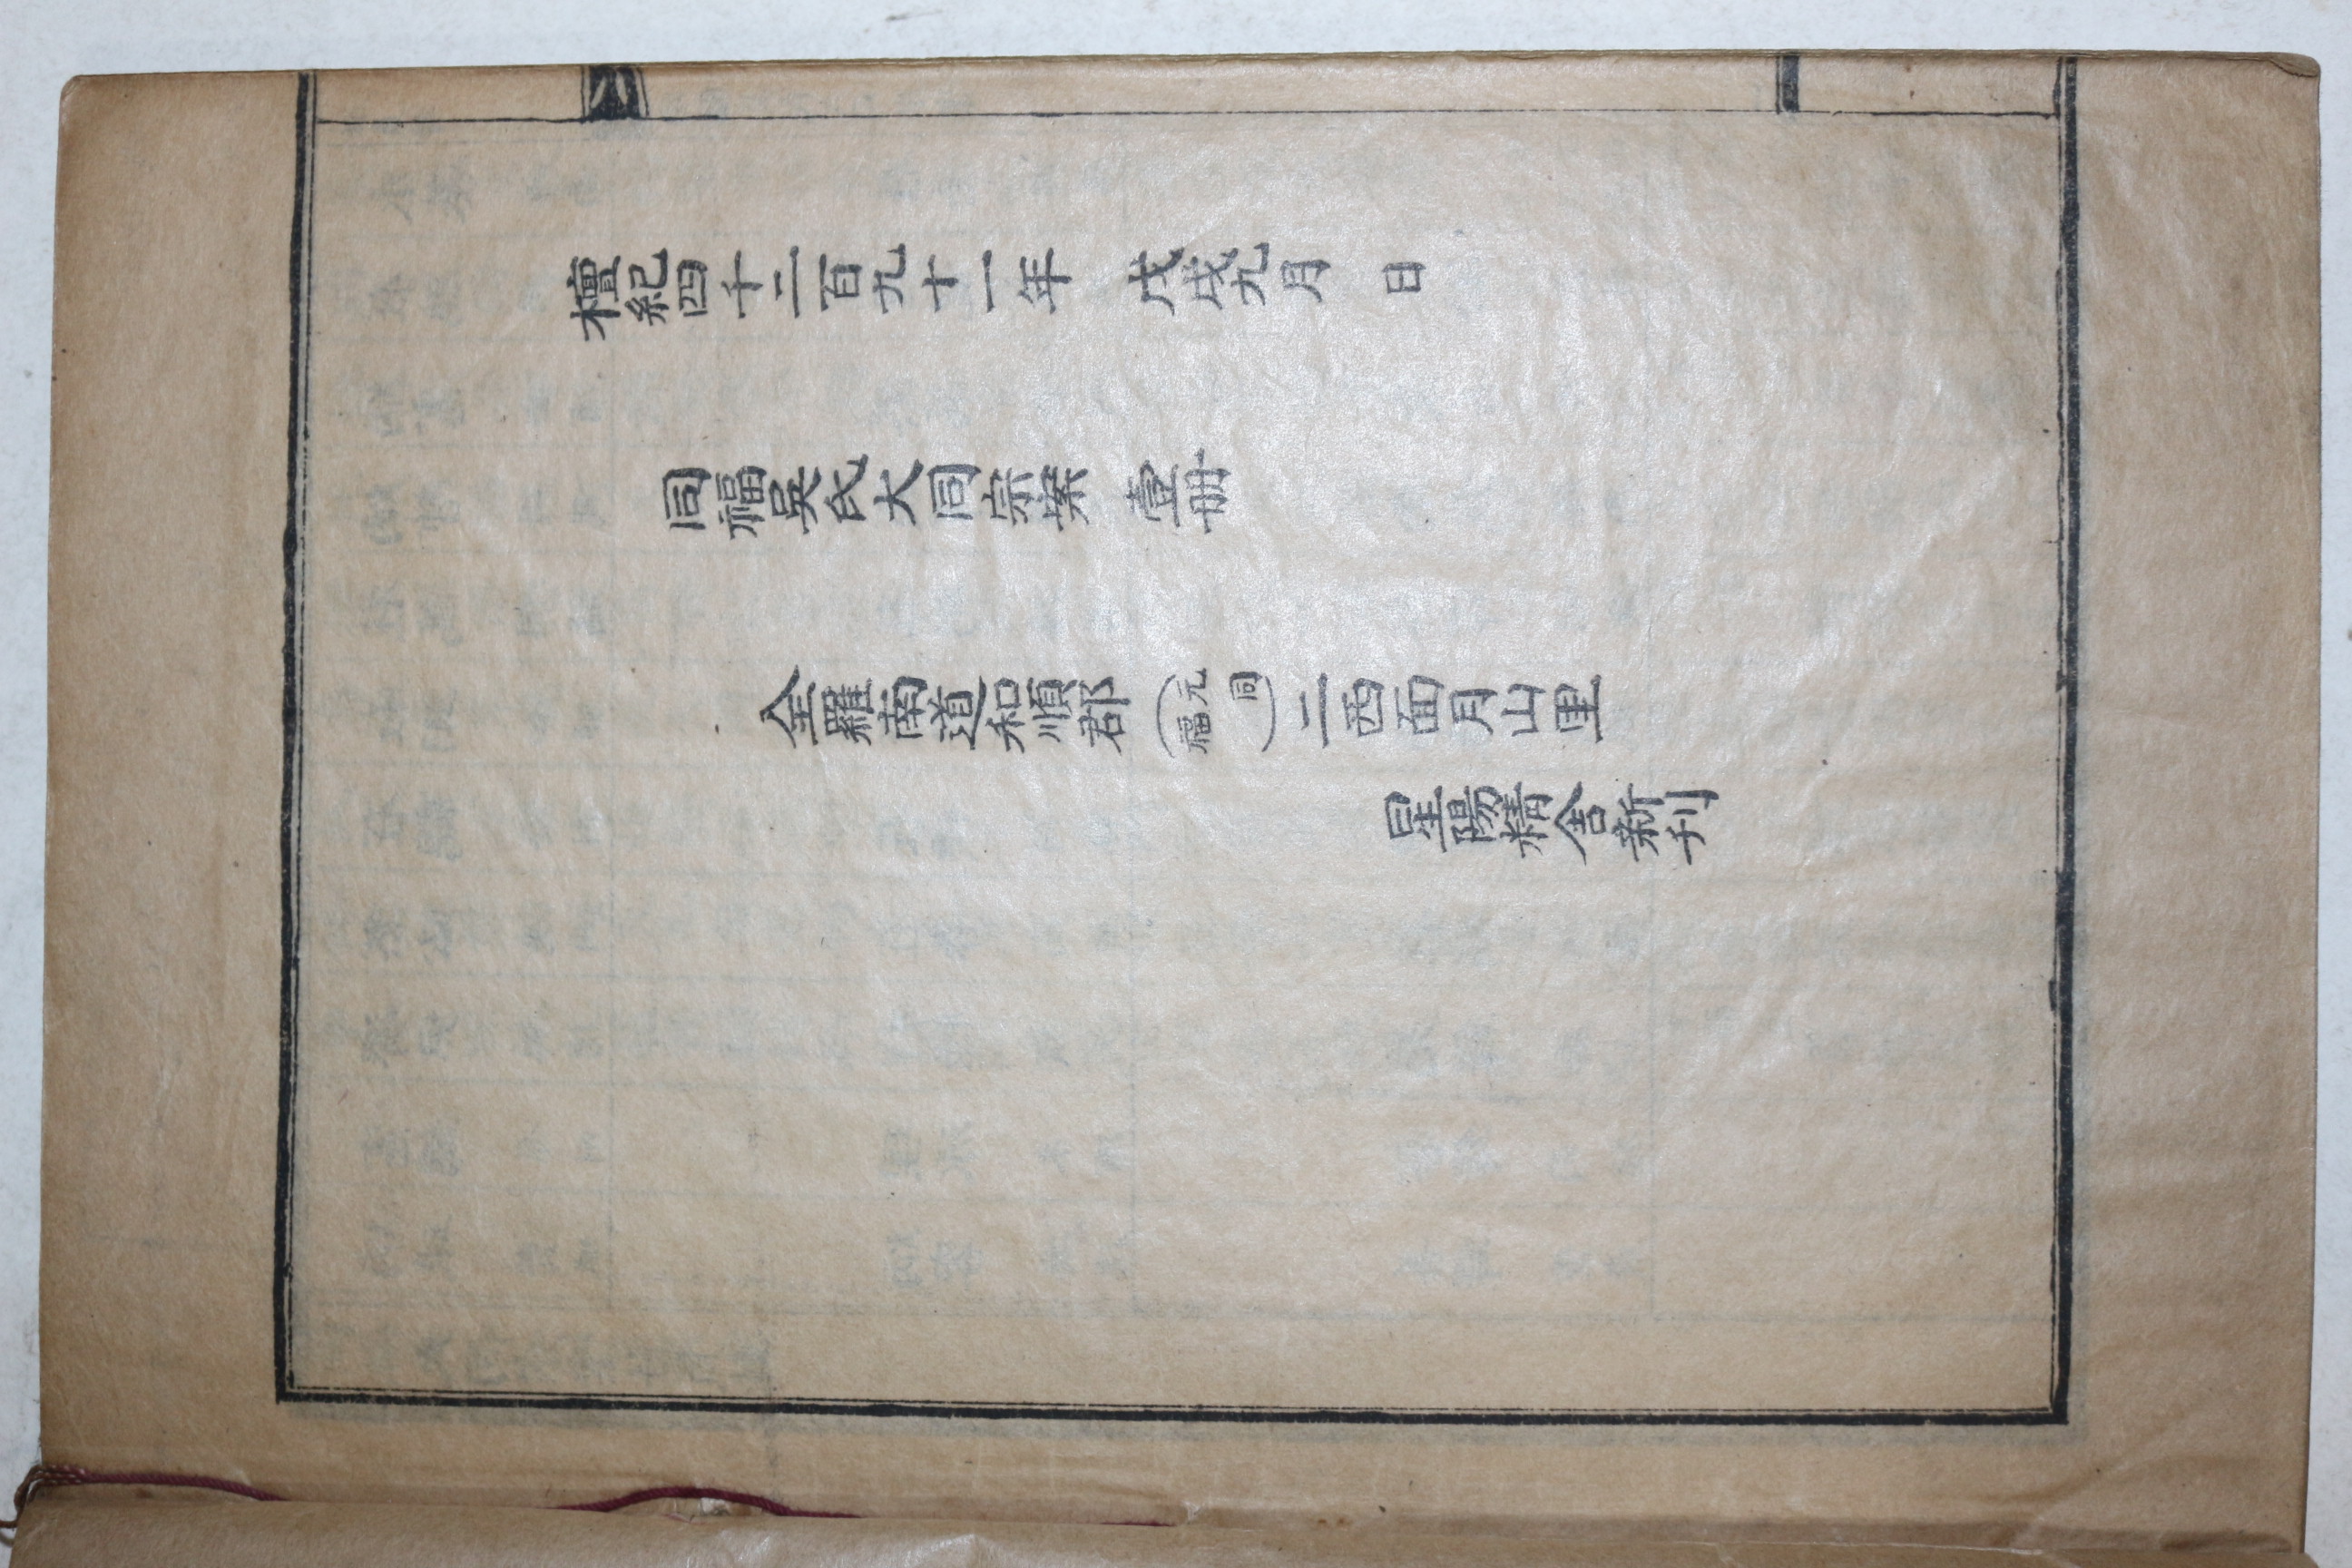 檀紀四千二百九十一年 戊戌九月 日
同福吳氏大同宗案 壹册
全羅南道和順郡(元同福)二西面月山里
星陽精舍新刊